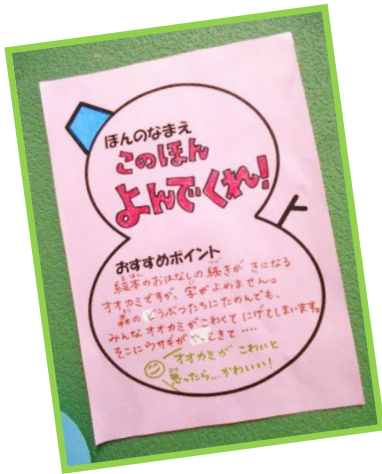 ほんのなまえ
このほん
よんでくれ!
おすすめポイント
絵本のおはなしの続きが きになる
オオカミですが、字がよめません。
森のどうぶつたちにたのんでも、
みんなオオカミがこわくて にげてしまいます。
そこにウサギが やってきて ‥‥
オオカミが こわいと
思ったら…かわいい!